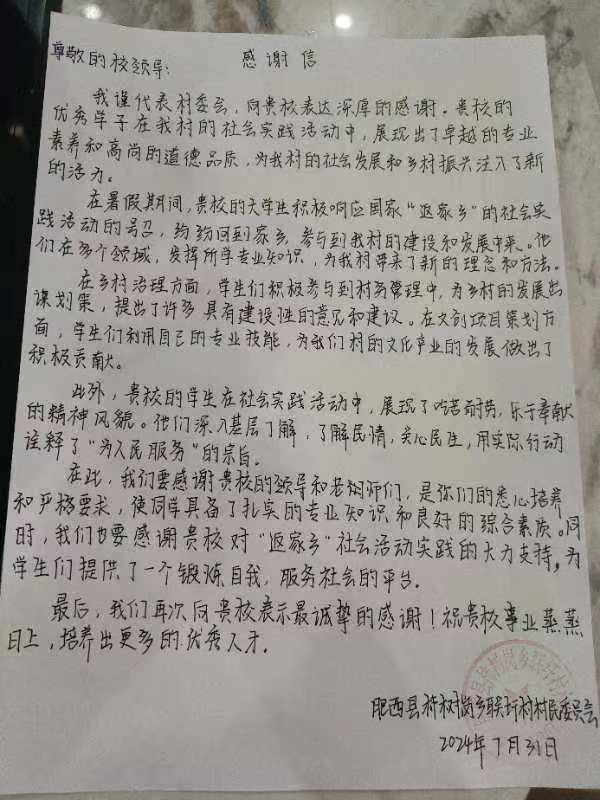 感谢信
尊敬的校领导:
我谨代表村委会,向贵校表达深厚的感谢。贵校的
优秀学子在我村的社会实践活动中,展现出了卓越的专业
素养和高尚的道德品质,为我村的社会发展和乡村振兴注入了新
的活力。
在暑假期间,贵校的大学生积极响应国家“返家乡”的社会实
践活动的号召,纷纷回到家乡,参与到我村的建设和发展中来。他
们在多个领域,发挥所学专业知识,为我村带来了新的理念和方法。
在乡村治理方面,学生们积极参与到村务管理中,为乡村的发展出
谋划策,提出了许多具有建设性的意见和建议。在文创项目策划方
面,学生们利用自己的专业技能,为我们村的文化产业的发展做出了
积极贡献。
此外,贵校的学生在社会实践活动中,展现了吃苦耐劳,乐于奉献
的精神风貌。他们深入基层了解,了解民情,关心民生,用实际行动
诠释了“为人民服务”的宗旨。
在此,我们要感谢贵校的领导和老师们,是你们的悉心培养
和严格要求,使同学具备了扎实的专业知识和良好的综合素质。同
时,我们也要感谢贵校对“返家乡”社会活动实践的大力支持,为
学生们提供了一个锻炼自我,服务社会的平台。
最后,我们再次向贵校表示最诚挚的感谢!祝贵校事业蒸蒸
日上,培养出更多的优秀人才。
肥西县柿树岗乡联圩村村民委员会
2024年7月31日